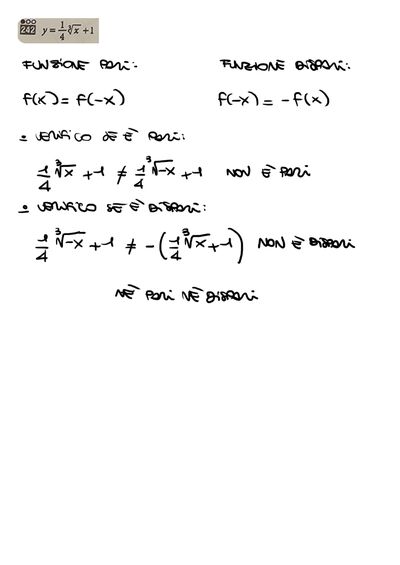 232 y = 1/4 ∛x + 1
FUNZIONE PARI: FUNZIONE DISPARI:
f(x) = f(-x) f(-x) = -f(x)
VERIFICO SE È PARI:
1/4 ∛x + 1 ≠ 1/4 ∛-x + 1 NON È PARI
VERIFICO SE È DISPARI:
1/4 ∛-x + 1 ≠ -(1/4 ∛x + 1) NON È DISPARI
NÈ PARI NÈ DISPARI